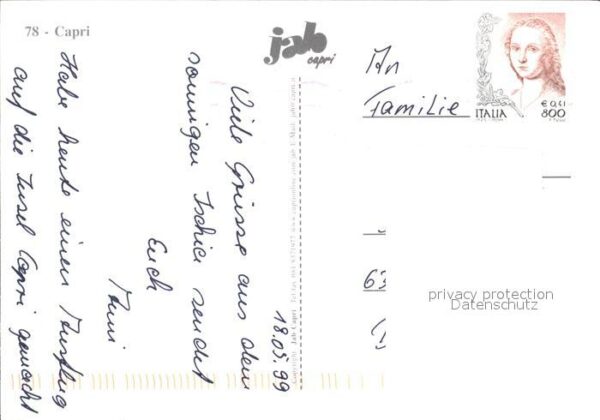 78 - Capri
jab
capri
18.05.99
Viele Grüsse aus dem
sonnigen Ischia sendet
Euch
Anni
Habe heute einen Ausflug
auf die Insel Capri gemacht
An
Familie
63
ITALIA
€ 0,41
800
privacy protection
Datenschutz